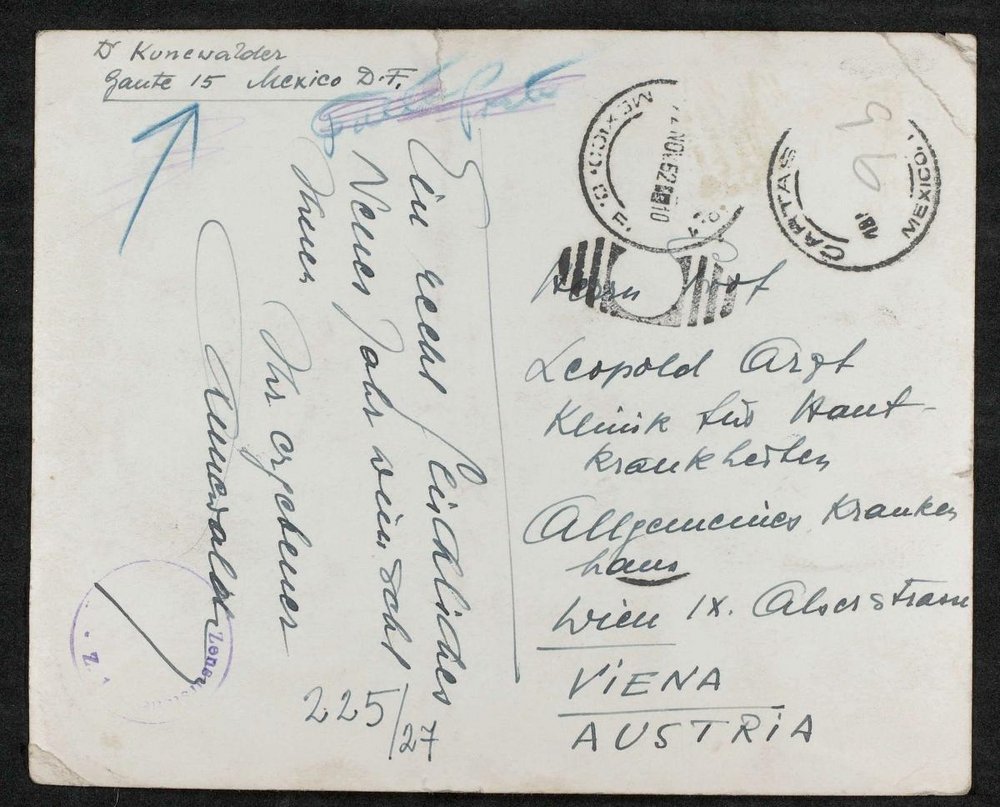 Dr Kunewalder
Gante 15 Mexico D.F.
Ein recht glückliches
Neues Jahr wünscht
Ihnen
Ihr ergebener
Kunewalder
225/27
MEXICO, D. F.
NOV 62
10
CARTAS
MEXICO,
Herrn Prof
Leopold Arzt
Klinik für Haut-
krankheiten
Allgemeines Kranken
haus
Wien IX. Alserstrasse
VIENA
AUSTRIA